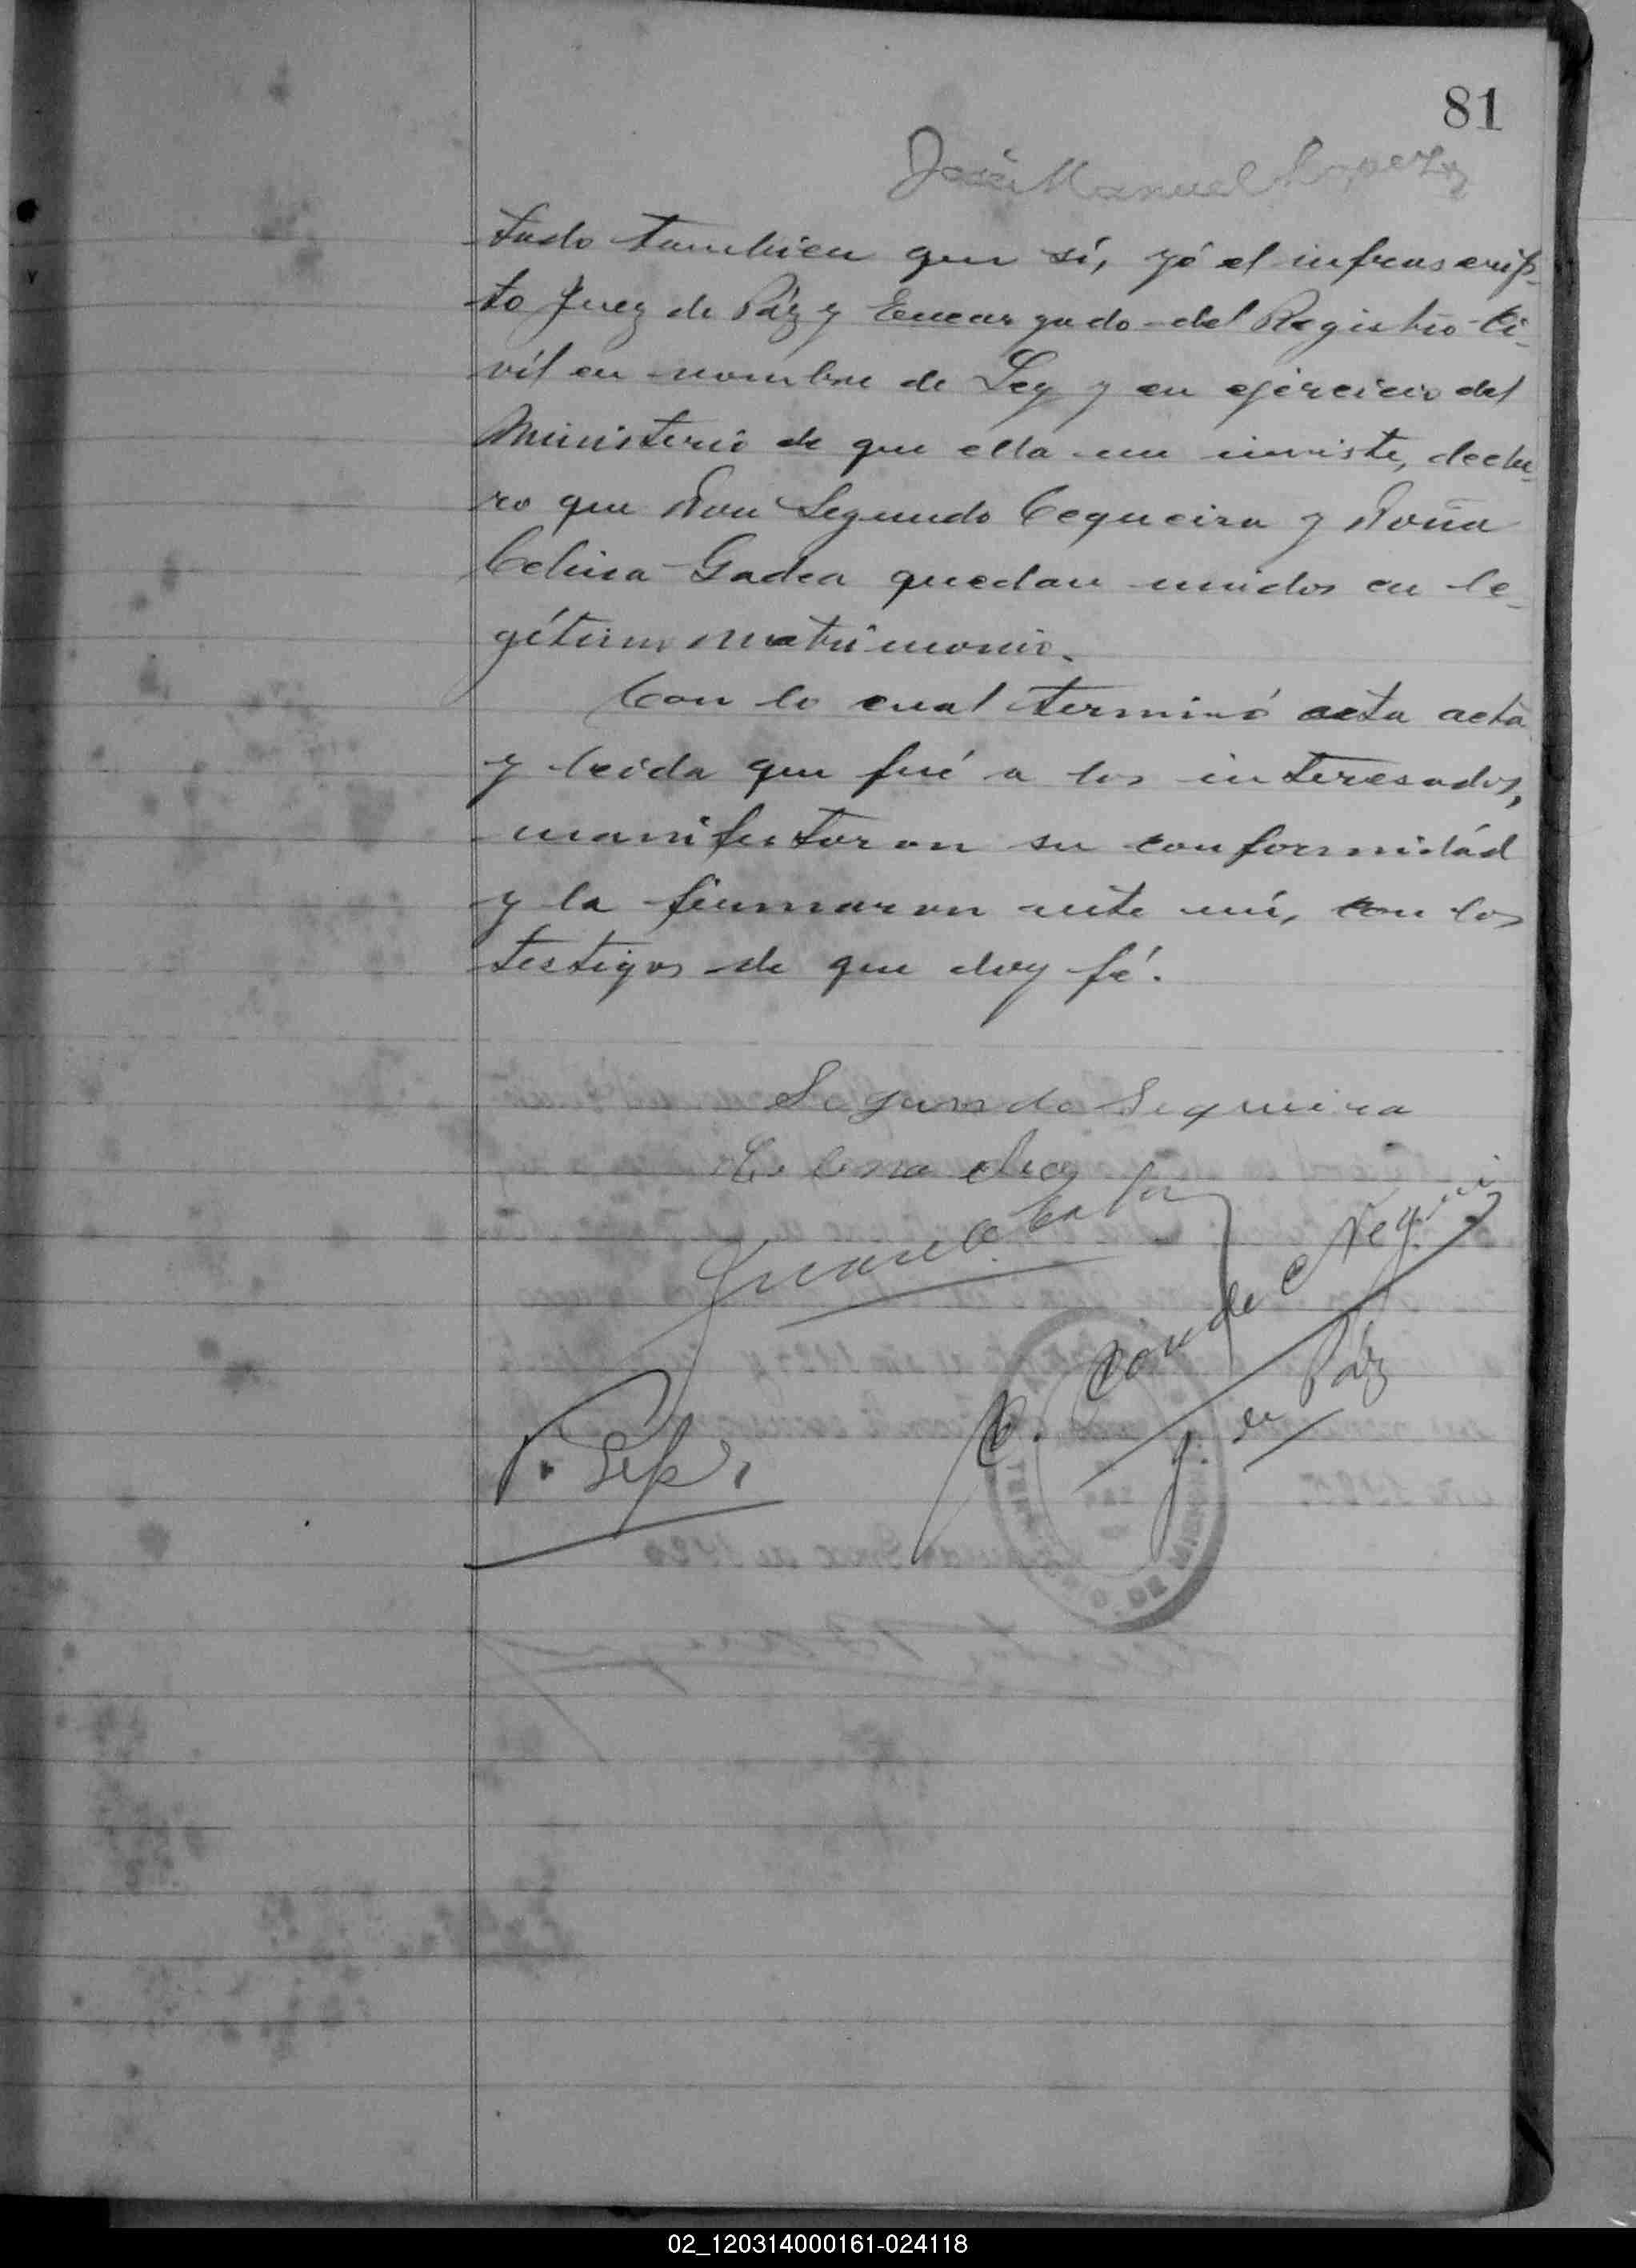 81
José Manuel Lopez
tado tambien que sí, yó el infrascrip-
to Juez de Páz y Encargado del Registro Ci-
vil en nombre de Ley y en ejercicio del
Ministerio de que ella me inviste, decla-
ro que Don Segundo Cequeira y Doña
Celina Gadea quedan unidos en le-
gítimo matrimonio.
Con lo cual terminó esta acta
y leida que fué a los interesados,
manifestaron su conformidád
y la firmaron ante mí, con los
testigos de que doy fé.
Segundo Sequeira
Juan C.
Conde
J. de Páz
02_120314000161-024118